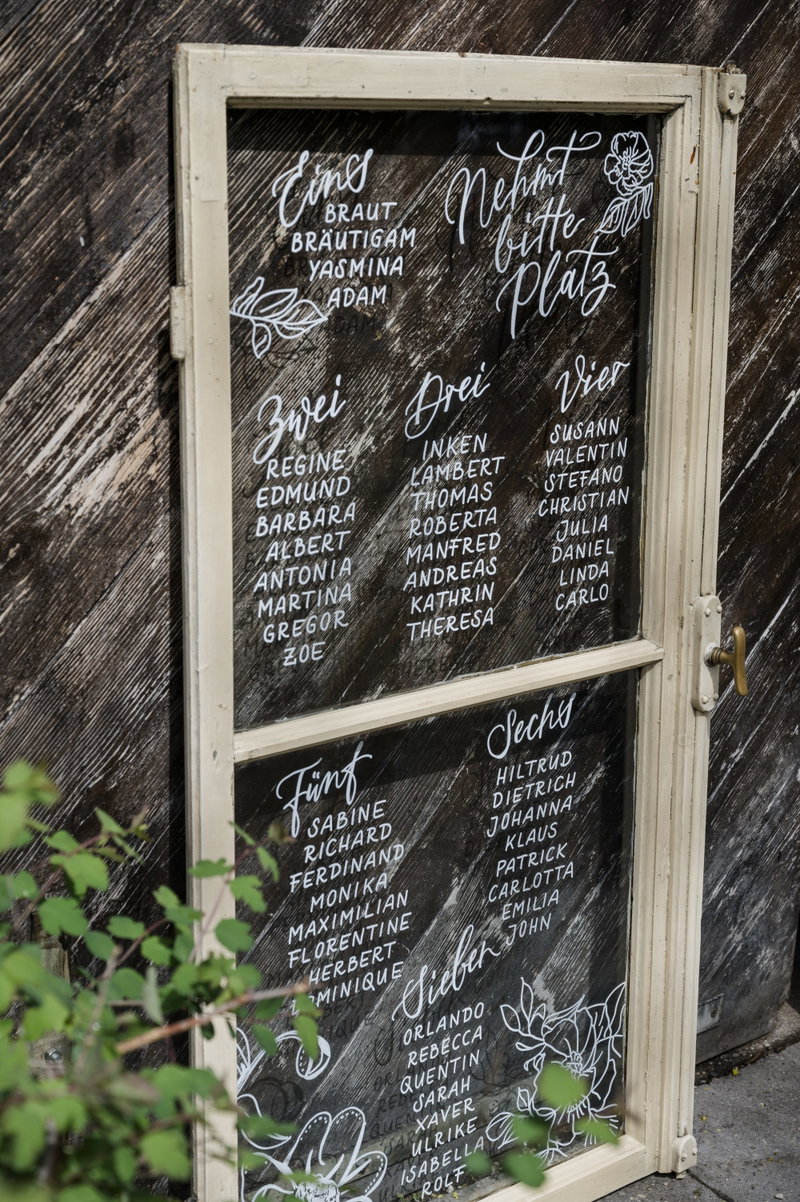 Eins
BRAUT
BRÄUTIGAM
YASMINA
ADAM
Nehmt
bitte
Platz
Zwei
REGINE
EDMUND
BARBARA
ALBERT
ANTONIA
MARTINA
GREGOR
ZOE
Drei
INKEN
LAMBERT
THOMAS
ROBERTA
MANFRED
ANDREAS
KATHRIN
THERESA
Vier
SUSANN
VALENTIN
STEFANO
CHRISTIAN
JULIA
DANIEL
LINDA
CARLO
Fünf
SABINE
RICHARD
FERDINAND
MONIKA
MAXIMILIAN
FLORENTINE
HERBERT
DOMINIQUE
Sechs
HILTRUD
DIETRICH
JOHANNA
KLAUS
PATRICK
CARLOTTA
EMILIA
JOHN
Sieben
ORLANDO
REBECCA
QUENTIN
SARAH
XAVER
ULRIKE
ISABELLA
ROLF